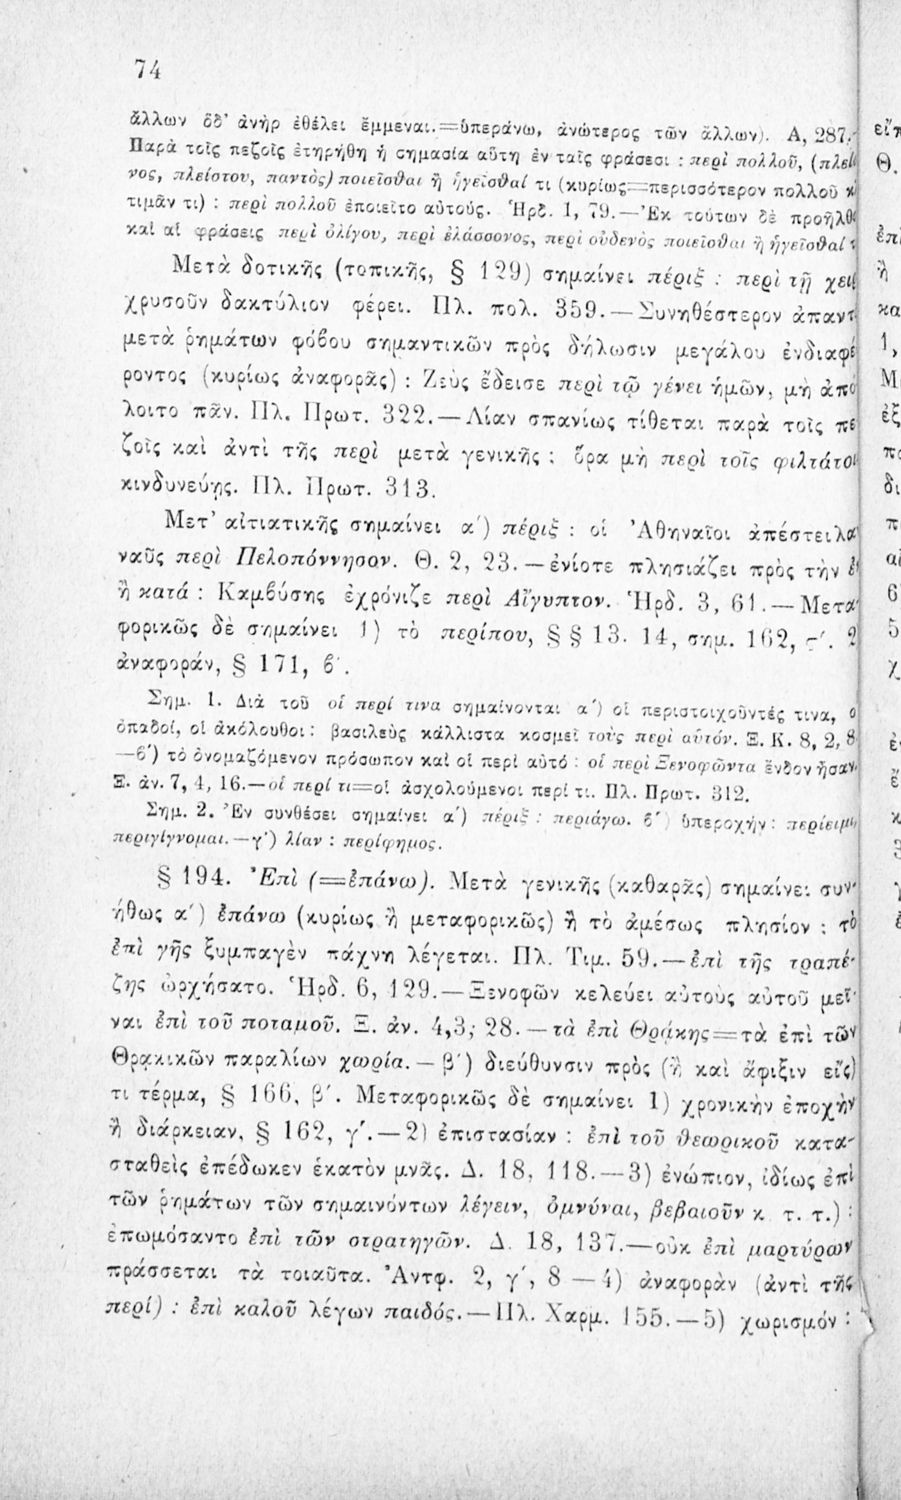 74
ἄλλων ὅδ’ ἀνὴρ ἐθέλει ἔμμεναι.=ὑπεράνω, ἀνώτερος τῶν ἄλλων). Α, 287.
Παρὰ τοῖς πεζοῖς ἐτηρήθη ἡ σημασία αὕτη ἐν ταῖς φράσεσι : περὶ πολλοῦ, (πλεί
νος, πλείστου, παντὸς) ποιεῖσθαι ἢ ἡγεῖσθαί τι (κυρίως=περισσότερον πολλοῦ
τιμᾶν τι) : περὶ πολλοῦ ἐποιεῖτο αὐτούς. Ἡρδ. 1, 79.—Ἐκ τούτων δὲ προῆλθ
καὶ αἱ φράσεις περὶ ὀλίγου, περὶ ἐλάσσονος, περὶ οὐδενὸς ποιεῖσθαι ἢ ἡγεῖσθαί
Μετὰ δοτικῆς (τοπικῆς, § 129) σημαίνει πέριξ : περὶ τῇ χει
χρυσοῦν δακτύλιον φέρει. Πλ. πολ. 359.—Συνηθέστερον ἀπαντ
μετὰ ῥημάτων φόβου σημαντικῶν πρὸς δήλωσιν μεγάλου ἐνδιαφέ
ροντος (κυρίως ἀναφορᾶς) : Ζεὺς ἔδεισε περὶ τῷ γένει ἡμῶν, μὴ ἀπό
λοιτο πᾶν. Πλ. Πρωτ. 322.—Λίαν σπανίως τίθεται παρὰ τοῖς πε
ζοῖς καὶ ἀντὶ τῆς περὶ μετὰ γενικῆς : ὅρα μὴ περὶ τοῖς φιλτάτοι
κινδυνεύῃς. Πλ. Πρωτ. 313.
Μετ’ αἰτιατικῆς σημαίνει α΄) πέριξ : οἱ Ἀθηναῖοι ἀπέστειλα
ναῦς περὶ Πελοπόννησον. Θ. 2, 23.—ἐνίοτε πλησιάζει πρὸς τὴν
ἢ κατά : Καμβύσης ἐχρόνιζε περὶ Αἴγυπτον. Ἡρδ. 3, 61.—Μετα
φορικῶς δὲ σημαίνει 1) τὸ περίπου, §§ 13. 14, σημ. 162, ς΄. 2
ἀναφοράν, § 171, β΄.
Σημ. 1. Διὰ τοῦ οἱ περί τινα σημαίνονται α΄) οἱ περιστοιχοῦντές τινα, ο
ὀπαδοί, οἱ ἀκόλουθοι : βασιλεὺς κάλλιστα κοσμεῖ τοὺς περὶ αὑτόν. Ξ. Κ. 8, 2, 8
—β΄) τὸ ὀνομαζόμενον πρόσωπον καὶ οἱ περὶ αὐτό : οἱ περὶ Ξενοφῶντα ἔνδον ἦσαν
Ξ. ἀν. 7, 4, 16.—οἱ περί τι=οἱ ἀσχολούμενοι περί τι. Πλ. Πρωτ. 312.
Σημ. 2. Ἐν συνθέσει σημαίνει α΄) πέριξ : περιάγω. β΄) ὑπεροχήν : περίειμι,
περιγίγνομαι.—γ΄) λίαν : περίφημος.
§ 194. Ἐπὶ (=ἐπάνω). Μετὰ γενικῆς (καθαρᾶς) σημαίνει συν-
ήθως α΄) ἐπάνω (κυρίως ἢ μεταφορικῶς) ἢ τὸ ἀμέσως πλησίον : τὸ
ἐπὶ γῆς ξυμπαγὲν πάχνη λέγεται. Πλ. Τιμ. 59.—ἐπὶ τῆς τραπέ-
ζης ὠρχήσατο. Ἡρδ. 6, 129.—Ξενοφῶν κελεύει αὐτοὺς αὐτοῦ μεῖ-
ναι ἐπὶ τοῦ ποταμοῦ. Ξ. ἀν. 4,3, 28.—τὰ ἐπὶ Θρᾴκης=τὰ ἐπὶ τῶν
Θρᾳκικῶν παραλίων χωρία.—β΄) διεύθυνσιν πρὸς (ἢ καὶ ἄφιξιν εἴς)
τι τέρμα, § 166, β΄. Μεταφορικῶς δὲ σημαίνει 1) χρονικὴν ἐποχὴν
ἢ διάρκειαν, § 162, γ΄.—2) ἐπιστασίαν : ἐπὶ τοῦ θεωρικοῦ κατα-
σταθεὶς ἐπέδωκεν ἑκατὸν μνᾶς. Δ. 18, 118.—3) ἐνώπιον, ἰδίως ἐπὶ
τῶν ῥημάτων τῶν σημαινόντων λέγειν, ὀμνύναι, βεβαιοῦν κ. τ. τ.) :
ἐπωμόσαντο ἐπὶ τῶν στρατηγῶν. Δ. 18, 137.—οὐκ ἐπὶ μαρτύρων
πράσσεται τὰ τοιαῦτα. Ἀντφ. 2, γ΄, 8—4) ἀναφορὰν (ἀντὶ τῆς
περί) : ἐπὶ καλοῦ λέγων παιδός.—Πλ. Χαρμ. 155.—5) χωρισμόν :